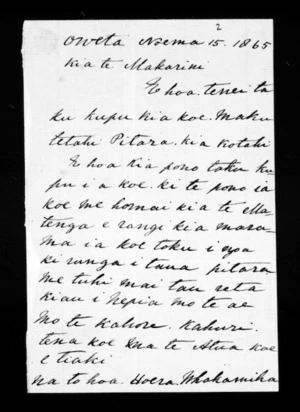 2
Oweta Noema 15. 1865
Kia te Makarini
E hoa. tenei ta
ku kupu kia koe. Maku
tetahi Pitara. kia kotahi
E hoa kia pono taku ku
pu i a koe. ki te pono ia
koe me homai kia te Ma
tenga e rangi kia mara
ma ia koe toku i oga
ki runga i taua pitara
me tuhi mai tau reta
kiau i Nepia mo te ae
Mo te kahore. kahuri.
tena koe Ma te Atua koe
e tiaki
na to hoa. Hoera. Whakamiha